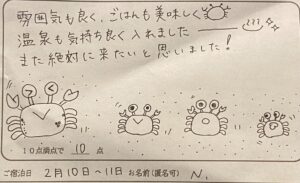 雰囲気も良く、ごはんも美味しく
温泉も気持ち良く入れました
また絶対に来たいと思いました!
10点満点で 10 点
ご宿泊日 2月10日~11日 お名前(匿名可) N.